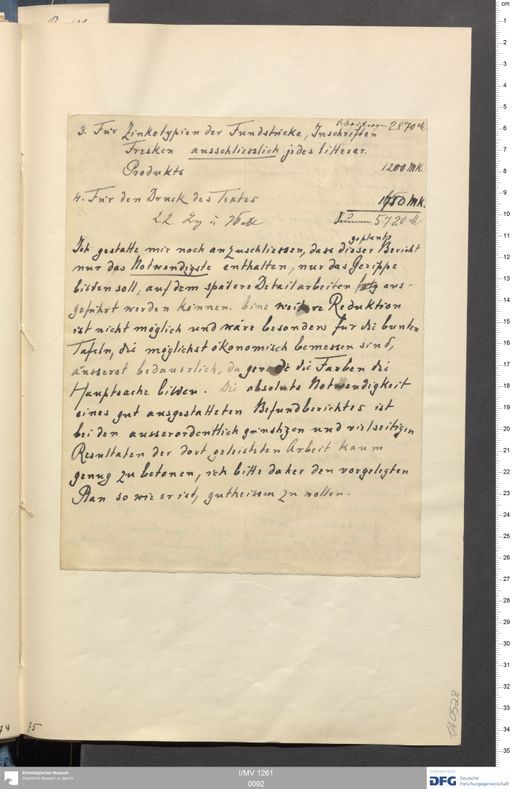 2870 M
3. Für Zinkotypien der Fundstücke, Inschriften
Fresken ausschliesslich jedes litterar.
Produkts 1200 MK.
4. Für den Druck des Textes 1650 MK.
22 Lg à
Summe 5720 M
geplante
Ich gestatte mir noch anzuschliessen, dass dieser Bericht
nur das Notwendigste enthalten, nur das Gerippe
bilden soll, auf dem spätere Detailarbeiten aus-
geführt werden können. Eine weitere Reduktion
ist nicht möglich und wäre besonders für die bunten
Tafeln, die möglichst ökonomisch bemessen sind,
äusserst bedauerlich, da gerade die Farben die
Hauptsache bilden. Die absolute Notwendigkeit
eines gut ausgestatteten Befundberichtes ist
bei den ausserordentlich günstigen und vielseitigen
Resultaten der dort geleisteten Arbeit kaum
genug zu betonen, ich bitte daher den vorgelegten
Plan so wie er ist, gutheissen zu wollen.
75
TA 0528
Ethnologisches Museum
Staatliche Museen zu Berlin
I/MV 1261
0092
DFG Deutsche
Forschungsgemeinschaft